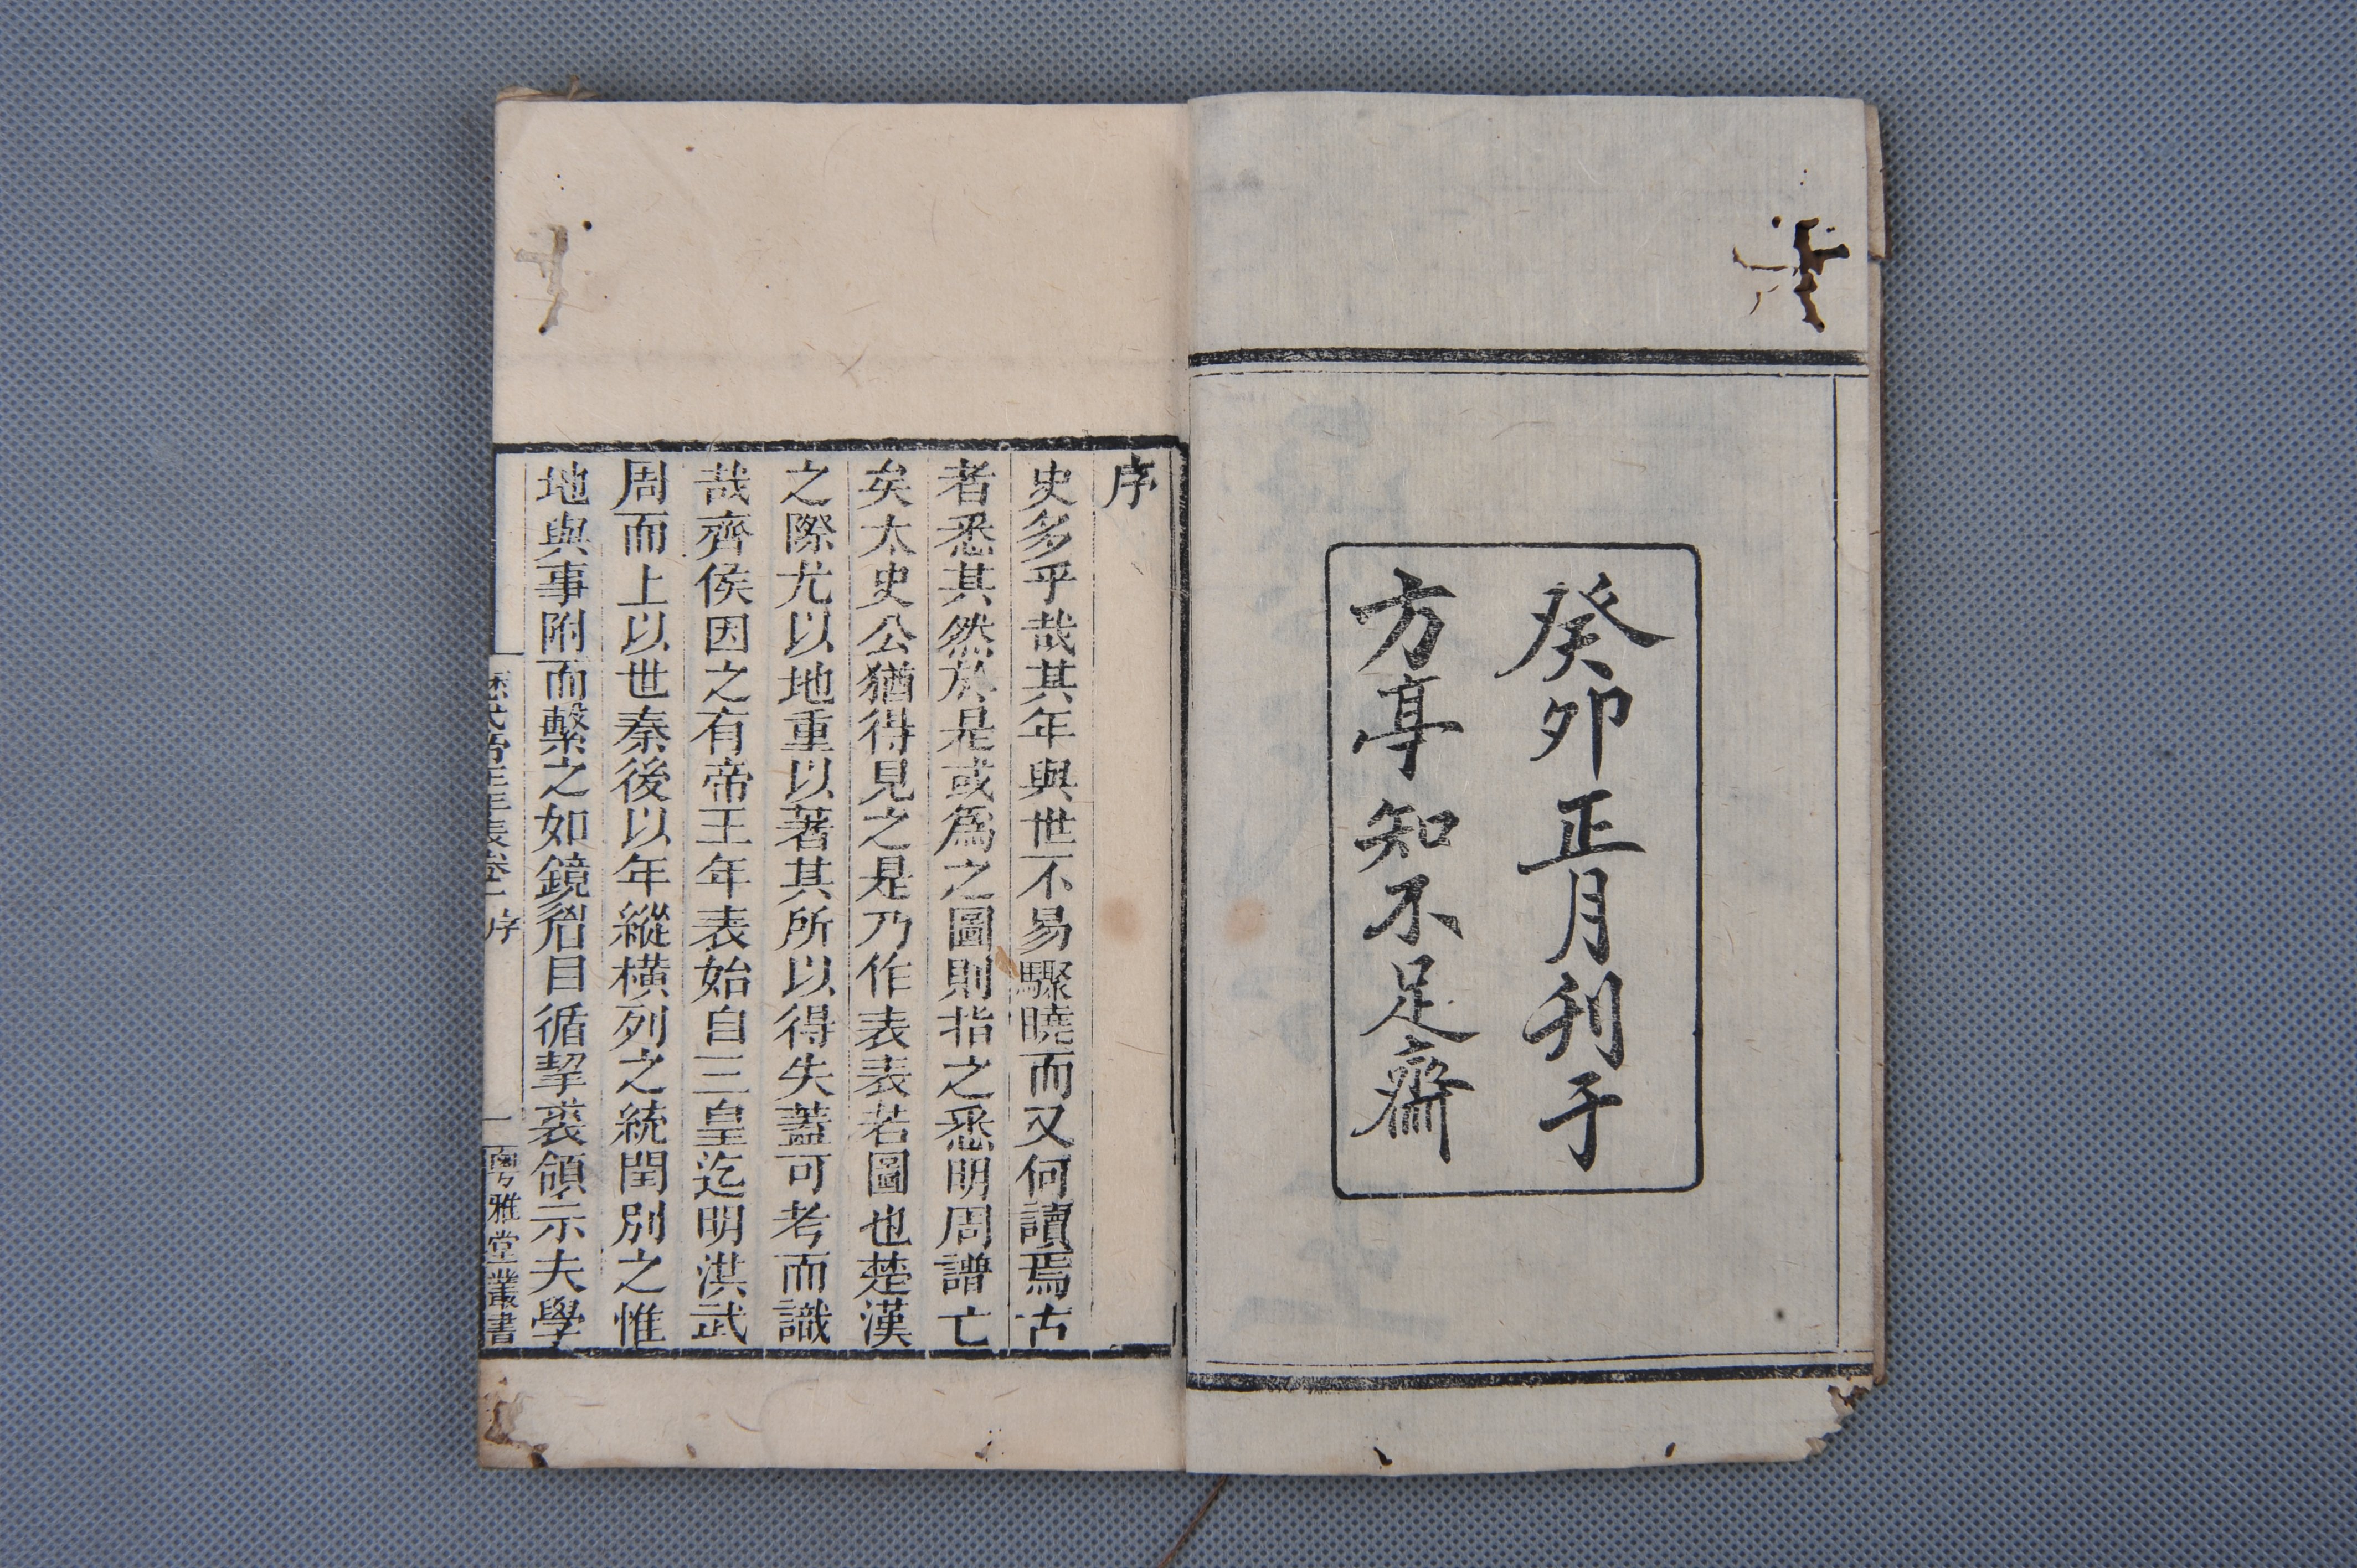 癸卯正月刋于
方亭知不足齋
序
史多乎哉其年與世不易驟曉而又何讀焉古
者悉其然於是或爲之圖則指之悉明周譜亡
矣太史公猶得見之是乃作表表若圖也楚漢
之際尤以地重以著其所以得失蓋可考而識
哉齊侯因之有帝王年表始自三皇迄明洪武
周而上以世秦後以年縱橫列之統閏別之惟
地與事附而繫之如鏡㒷目循挈裘領示夫學
歷代帝王年表卷一 序 一 粵雅堂叢書